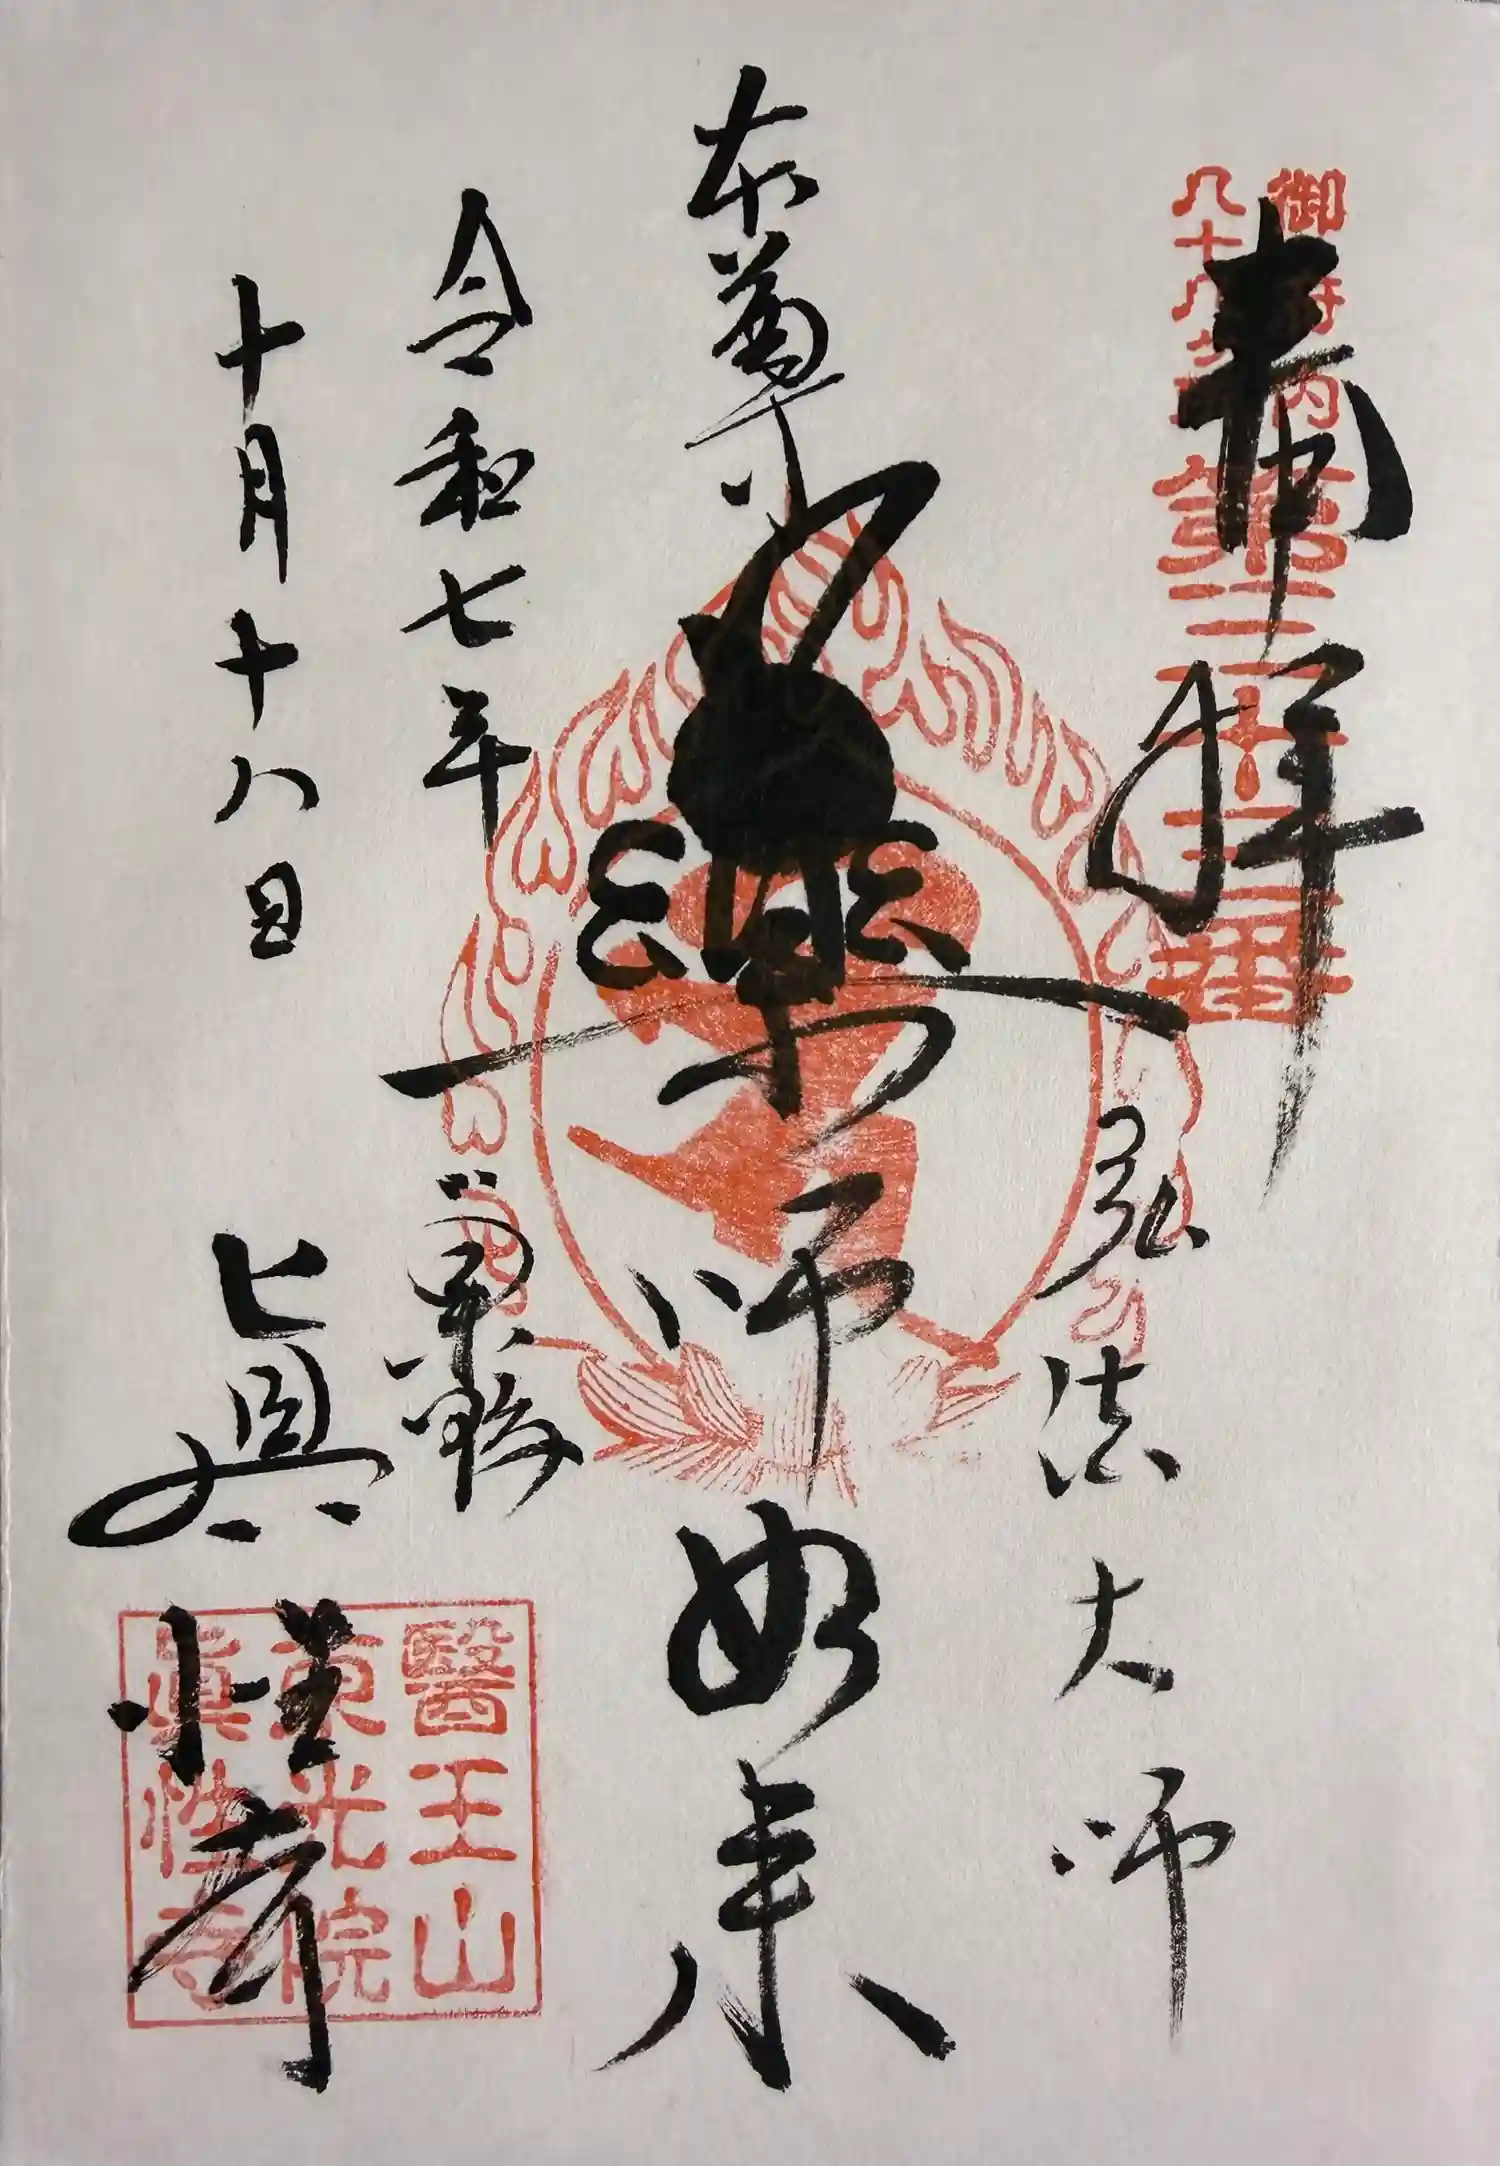 奉拝
弘法大師
本尊
薬師如来
令和七年
十月十八日
御府内
八十八ヶ所
醫王山
東光院
眞性寺